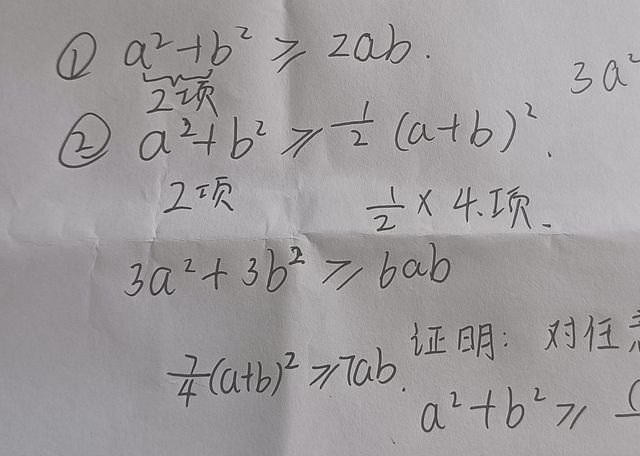 ① a²+b² ≥ 2ab.
3a²
2项
② a²+b² ≥ 1/2 (a+b)².
2项 1/2 × 4项.
3a²+3b² ≥ 6ab
证明: 对任意
7/4(a+b)² ≥ 7ab.
a²+b² ≥